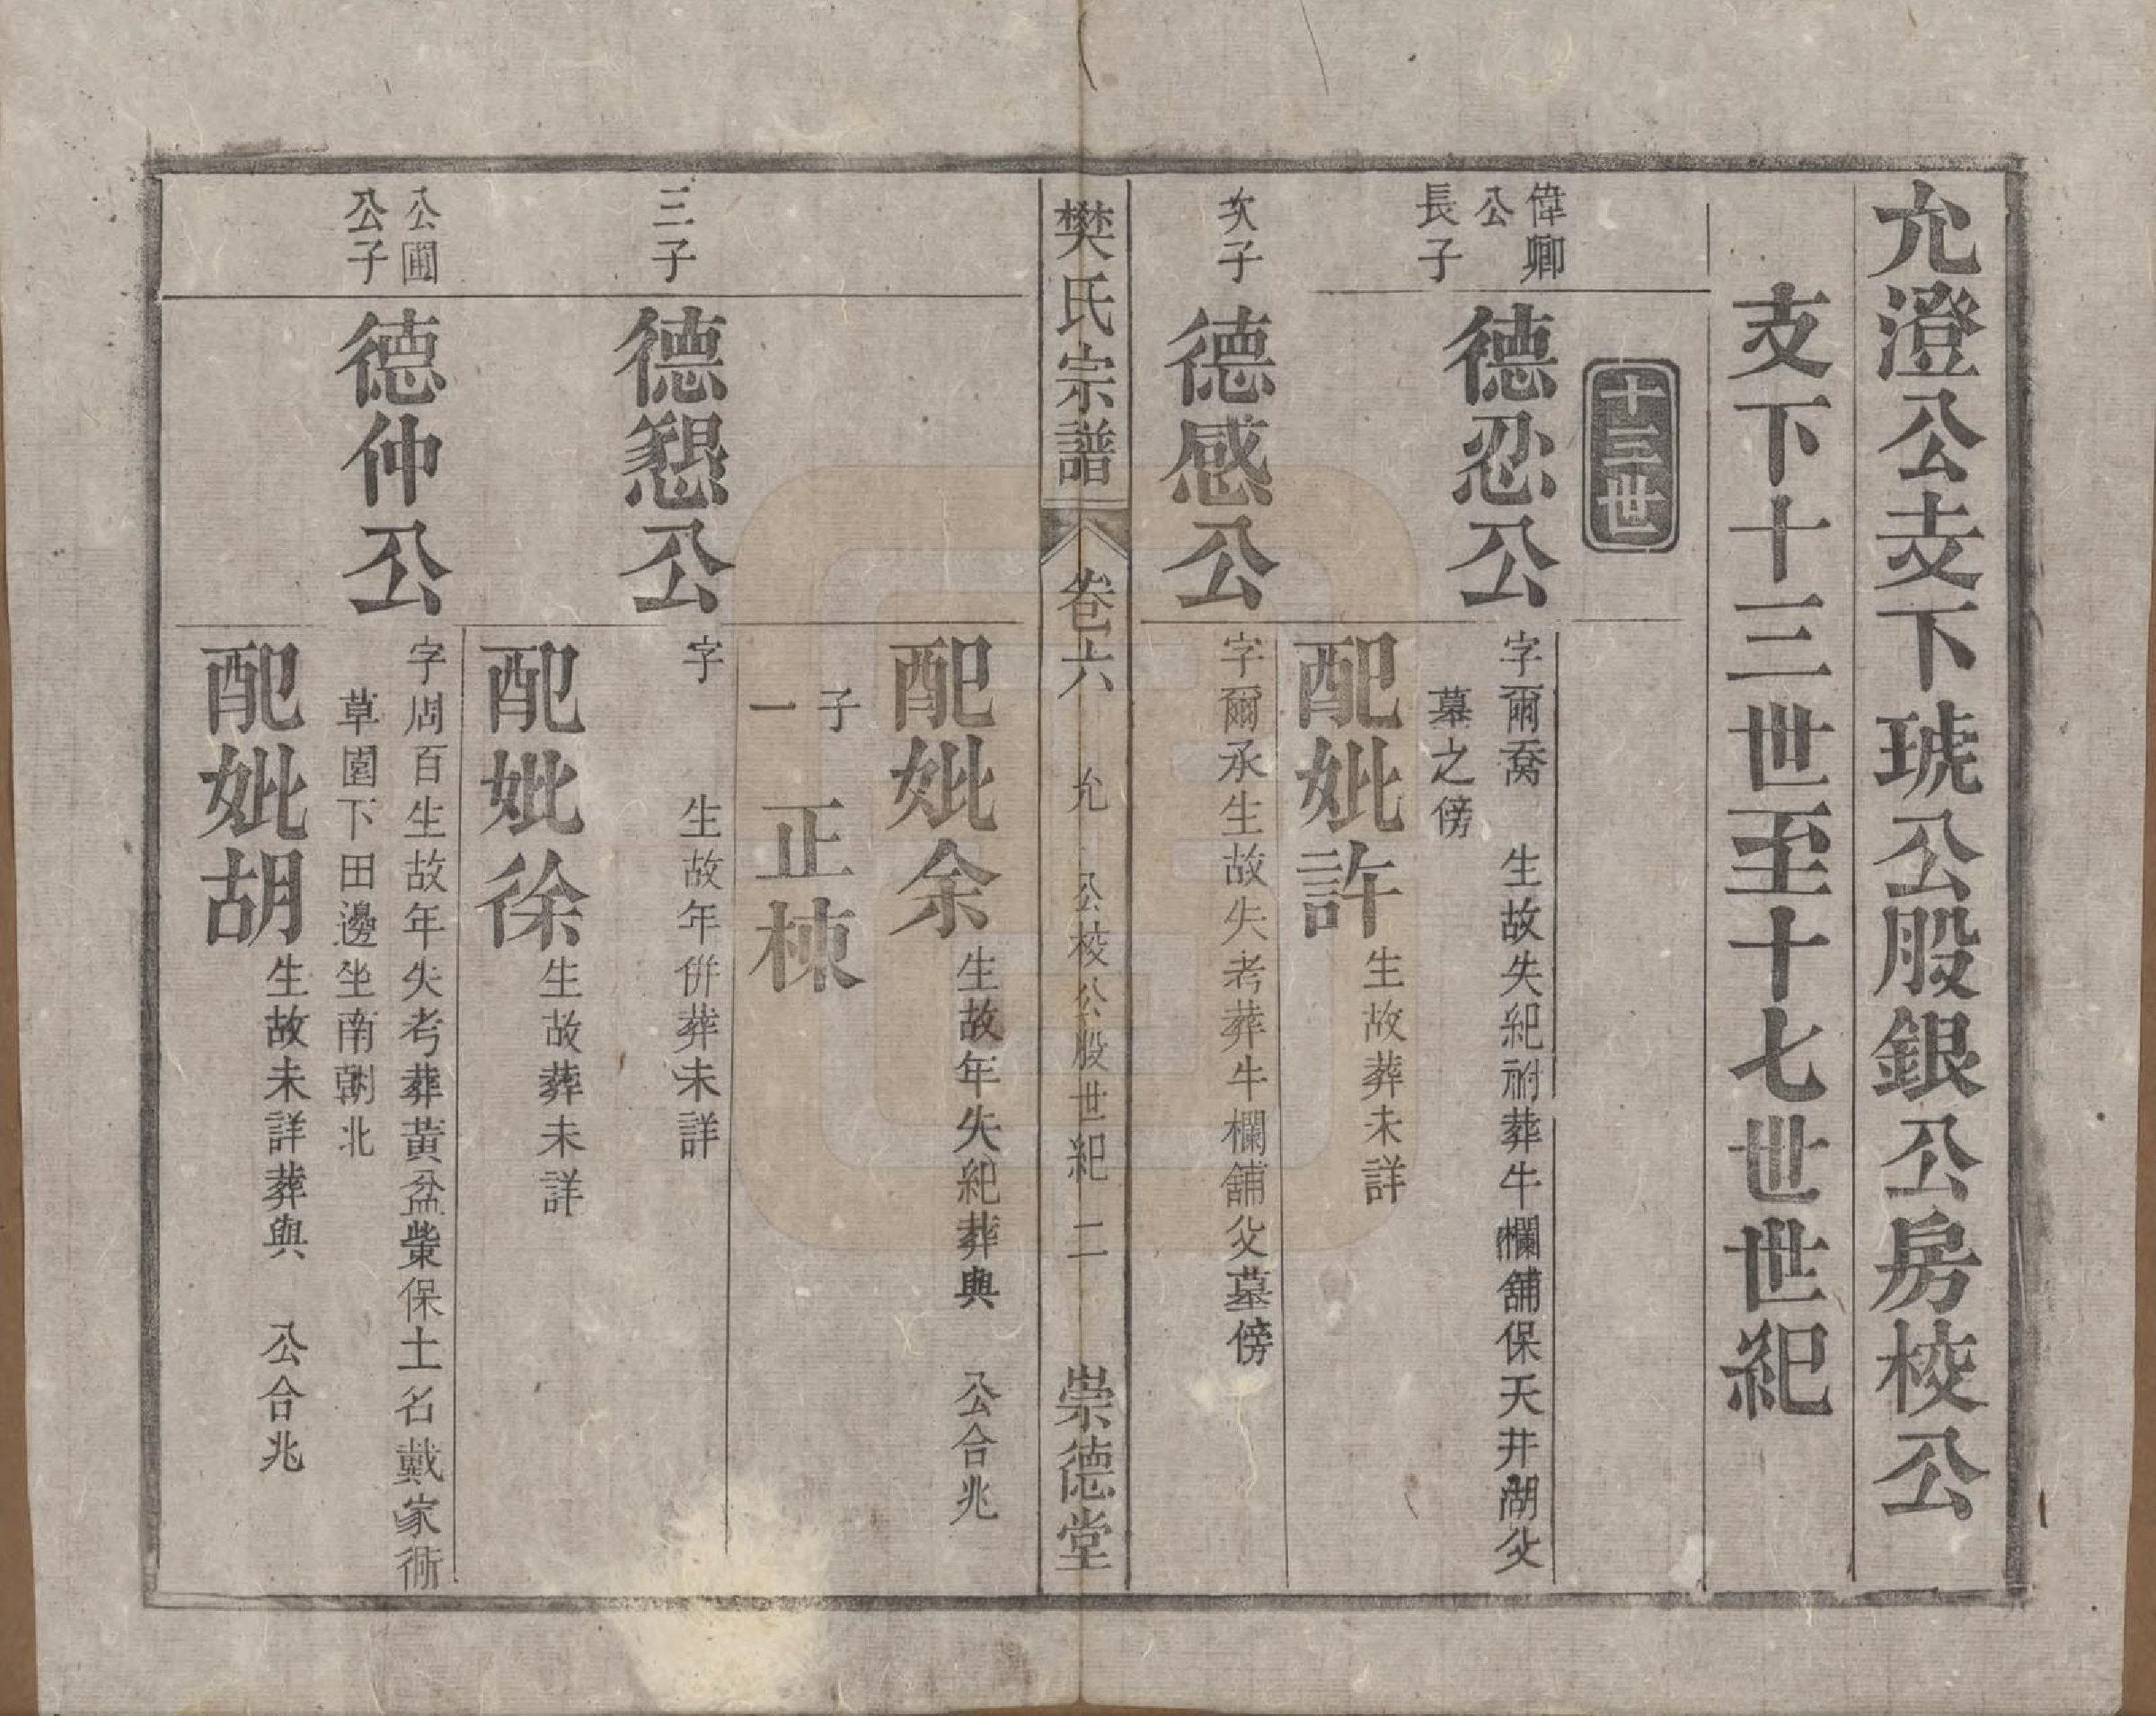 允澄公支下琥公股銀公房校公
支下十三世至十七世世紀
十三世
偉卿
公
長子
德忍公
字爾喬　生故失紀祔葬牛欄舖保天井湖父
墓之傍
配妣許
生故葬未詳
次子
德感公
字爾承生故失考葬牛欄舖父墓傍
樊氏宗譜
卷六
允　公校公股世紀　二
崇德堂
配妣余
生故年失紀葬與　公合兆
子
一
正棟
三子
德懇公
字　　生故年併葬未詳
配妣徐
生故葬未詳
公圃
公子
德仲公
字周百生故年失考葬黃盆柴保土名戴家衕
草園下田邊坐南朝北
配妣胡
生故未詳葬與　公合兆